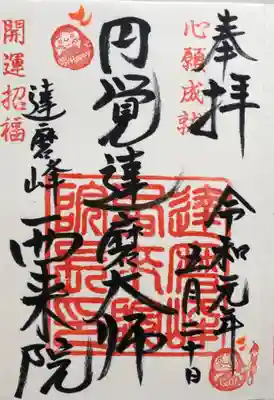 奉拝
心願成就
令和元年
五月二十日
円覚達磨大師
開運招福
達磨峰
西来院